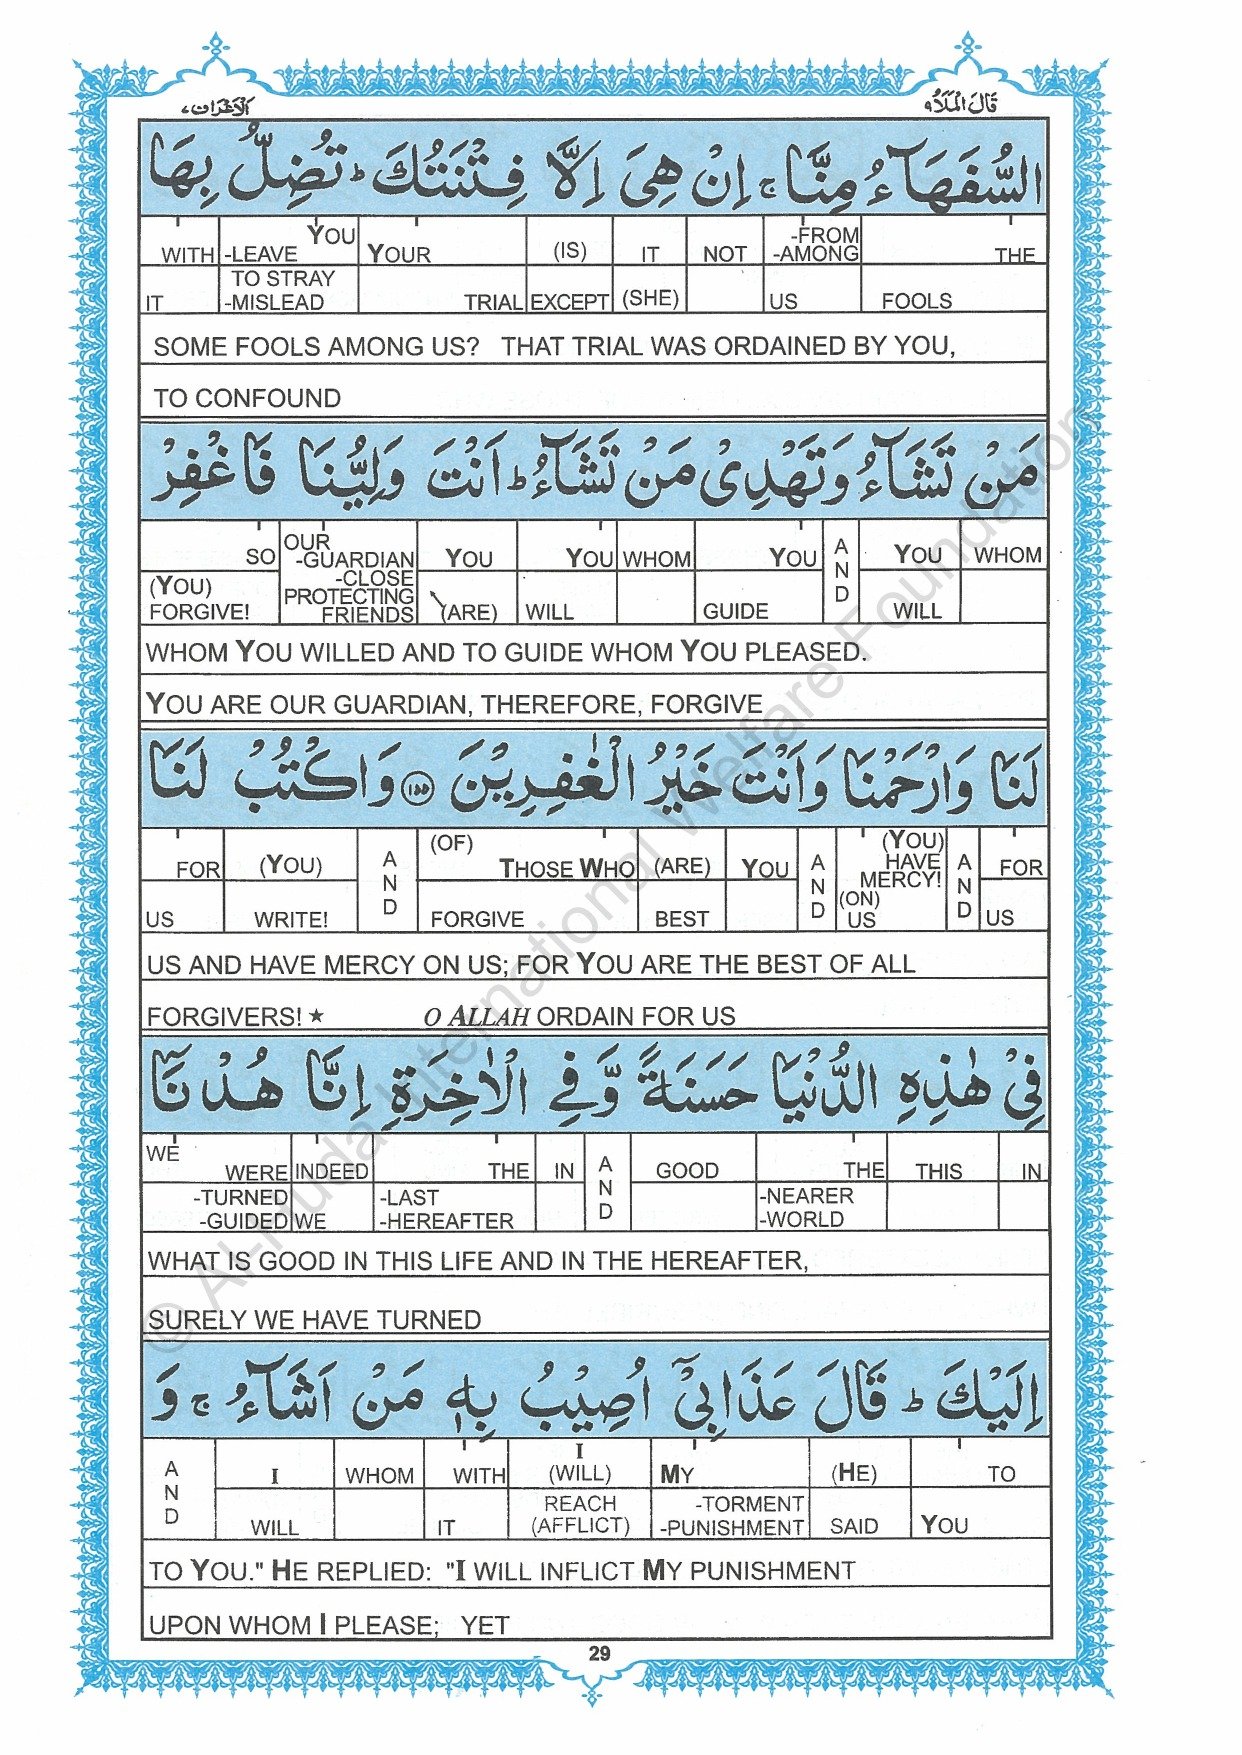 الاعراف ٧
قَالَ الْمَلَاُ ٩
السُّفَهَآءُ مِنَّا ۚ اِنْ هِىَ اِلَّا فِتْنَتُكَ ؕ تُضِلُّ بِهَا
WITH -LEAVE YOU YOUR (IS) IT NOT -FROM -AMONG THE
IT TO STRAY -MISLEAD TRIAL EXCEPT (SHE) US FOOLS
SOME FOOLS AMONG US? THAT TRIAL WAS ORDAINED BY YOU,
TO CONFOUND
مَنْ تَشَآءُ وَتَهْدِىْ مَنْ تَشَآءُ ؕ اَنْتَ وَلِيُّنَا فَاغْفِرْ
SO OUR -GUARDIAN YOU YOU WHOM YOU AND YOU WHOM
(YOU) FORGIVE! -CLOSE PROTECTING FRIENDS (ARE) WILL GUIDE WILL
WHOM YOU WILLED AND TO GUIDE WHOM YOU PLEASED.
YOU ARE OUR GUARDIAN, THEREFORE, FORGIVE
لَنَا وَارْحَمْنَا وَاَنْتَ خَيْرُ الْغٰفِرِيْنَ ﴿۱۵۵﴾ وَاكْتُبْ لَنَا
FOR (YOU) AND (OF) THOSE WHO (ARE) YOU AND (YOU) HAVE MERCY! AND FOR
US WRITE! FORGIVE BEST (ON) US US
US AND HAVE MERCY ON US; FOR YOU ARE THE BEST OF ALL
FORGIVERS! ★ O ALLAH ORDAIN FOR US
فِىْ هٰذِهِ الدُّنْيَا حَسَنَةً وَّفِى الْاٰخِرَةِ اِنَّا هُدْنَآ
WE WERE INDEED THE IN AND GOOD THE THIS IN
-TURNED -GUIDED WE -LAST -HEREAFTER -NEARER -WORLD
WHAT IS GOOD IN THIS LIFE AND IN THE HEREAFTER,
SURELY WE HAVE TURNED
اِلَيْكَ ؕ قَالَ عَذَابِىْۤ اُصِيْبُ بِهٖ مَنْ اَشَآءُ ۚ وَ
AND I WHOM WITH I (WILL) MY (HE) TO
WILL IT REACH (AFFLICT) -TORMENT -PUNISHMENT SAID YOU
TO YOU." HE REPLIED: "I WILL INFLICT MY PUNISHMENT
UPON WHOM I PLEASE; YET
29
© Al-Huda International Welfare Foundation